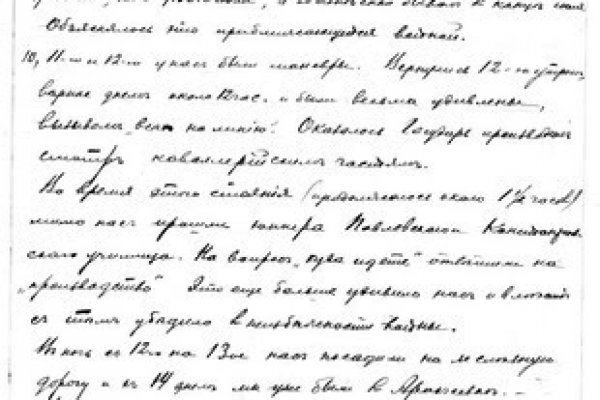 Объяснялось это приближающейся войной.
10, 11-го и 12-го у нас были маневры. Вернулись 12-го утром,
вернее днем около 12 час. и были весьма удивлены,
вызовом "всем на линию". Оказалось Государь производит
смотр кавалерийским частям.
Во время этого стояния (продолжалось около 1½ часов)
мимо нас прошли юнкера Павловского
ского училища. На вопрос "куда идете" ответили на
"производство". Это еще больше удивило нас и
с тем убедило в неизбежности войны.
В ночь с 12го на 13ое нас посадили на железную
дорогу и 14 днем мы уже были в